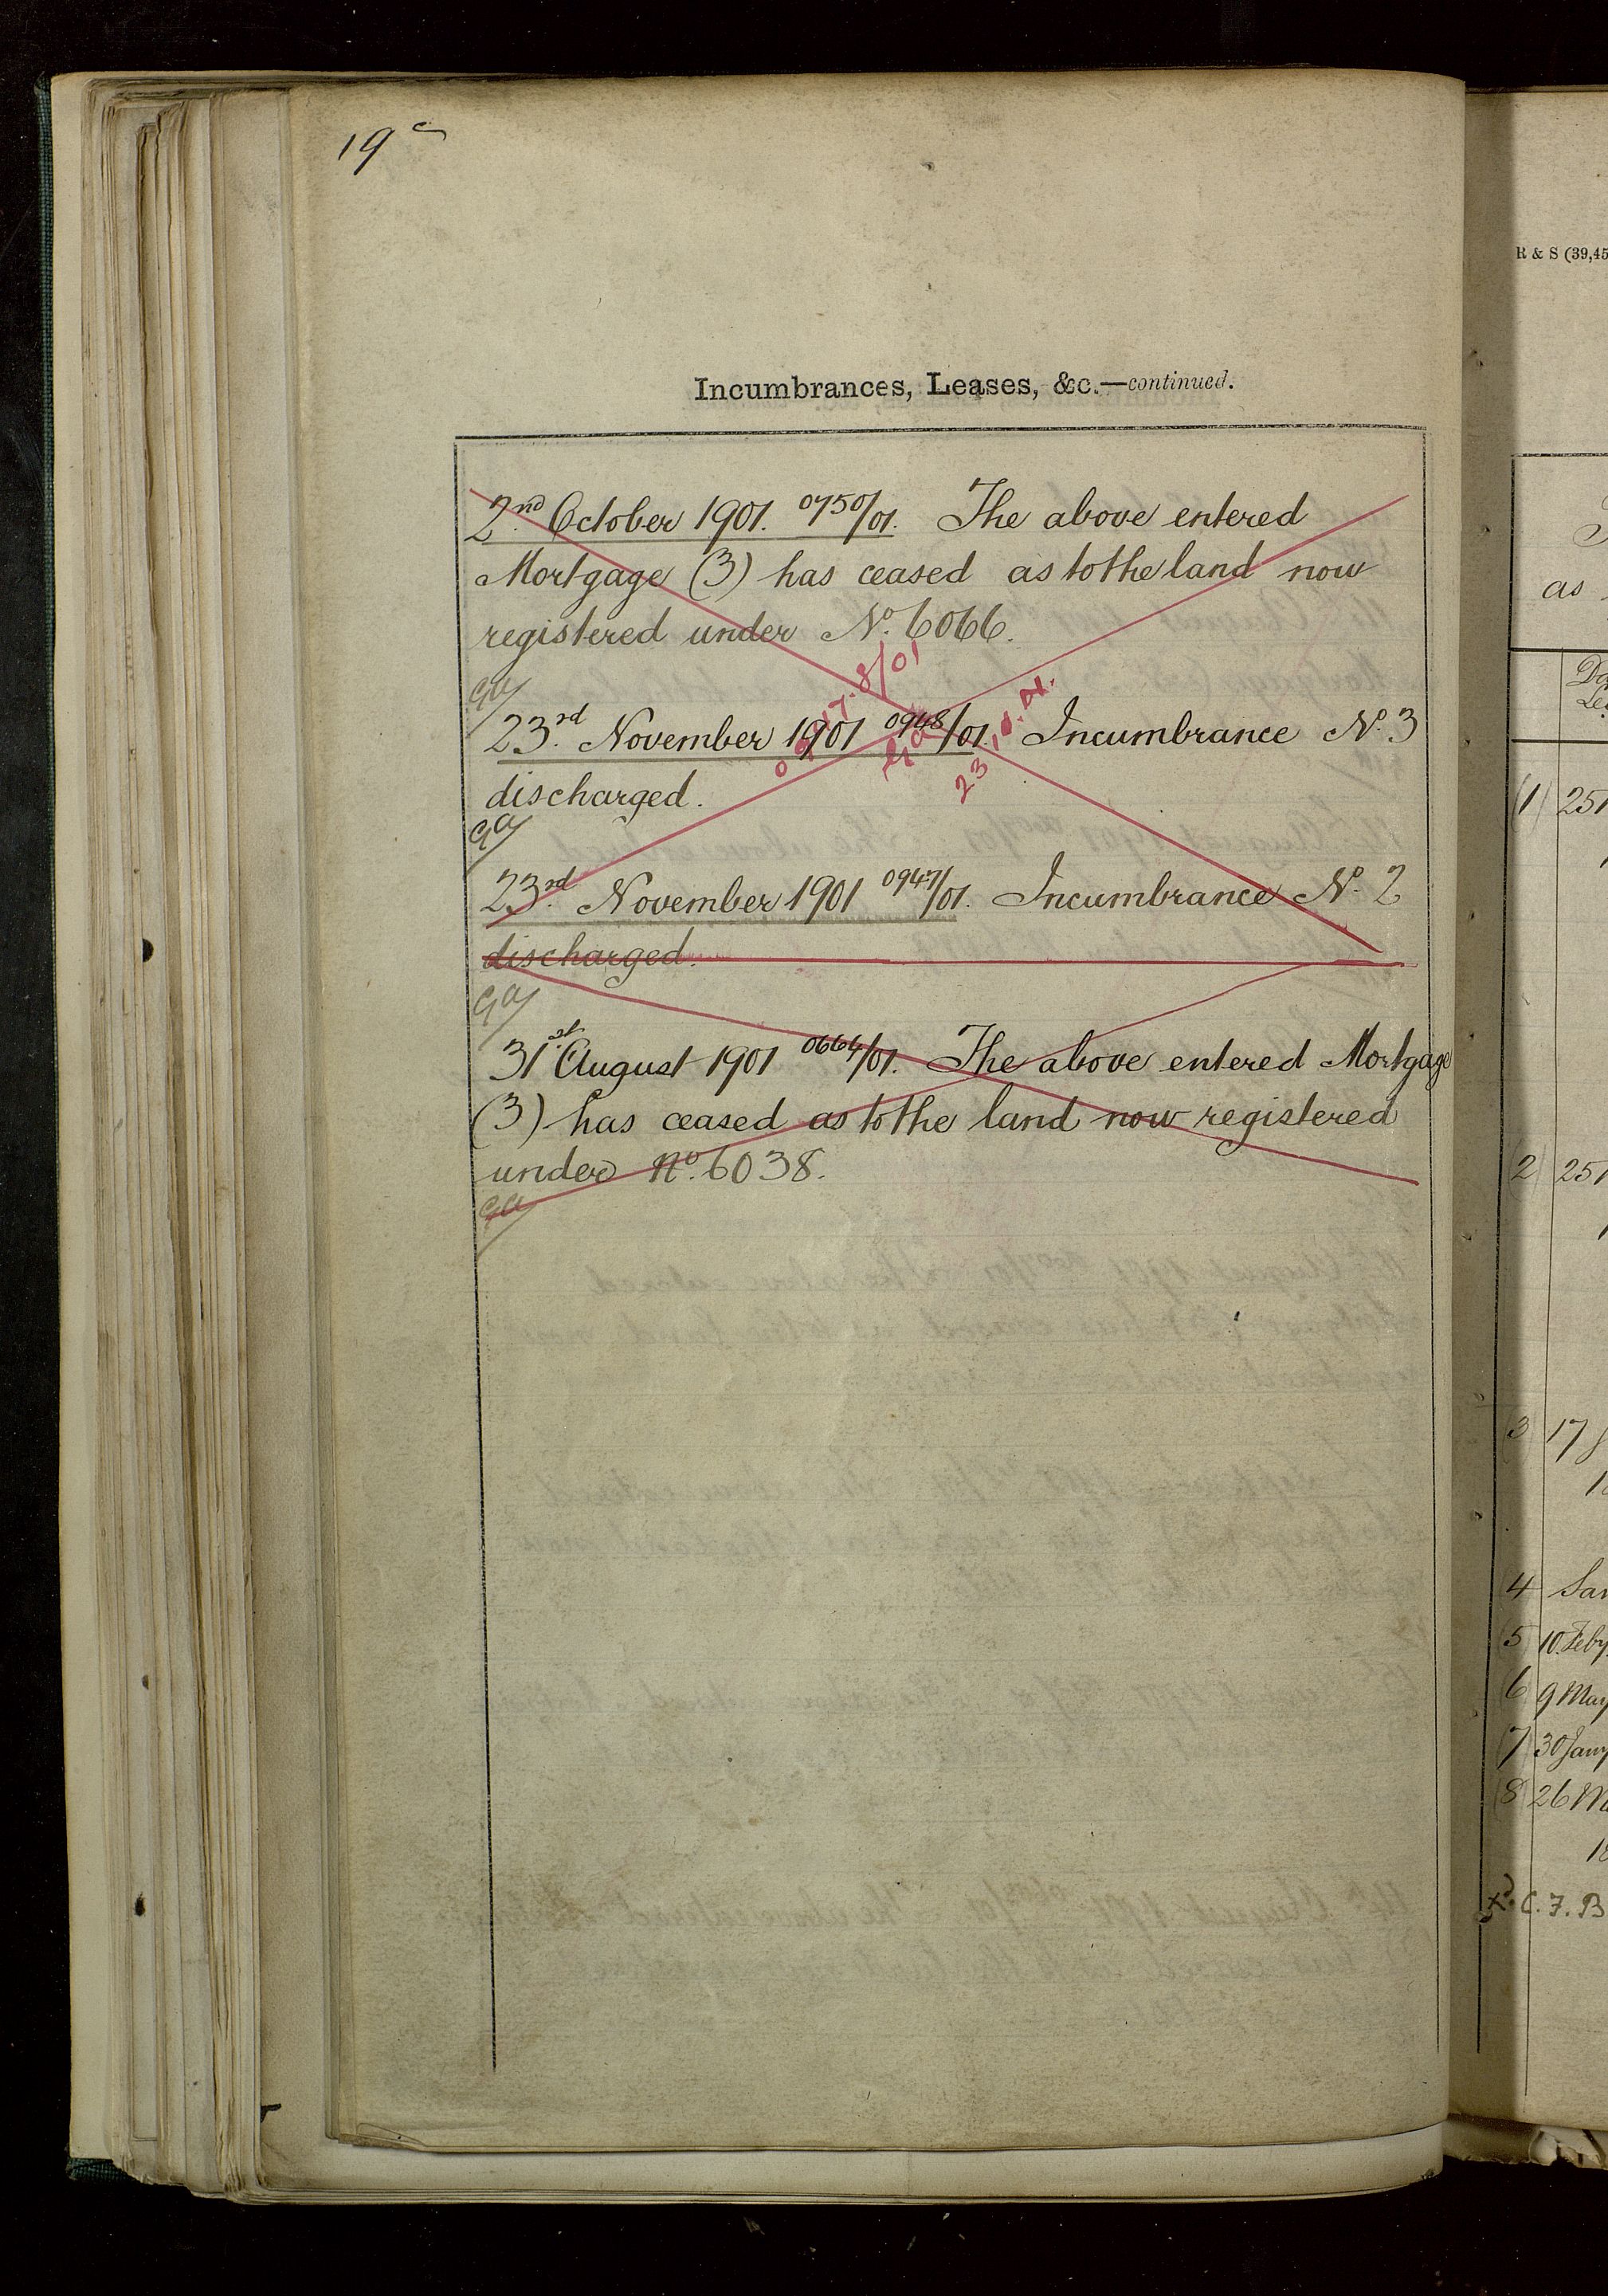 19c
Incumbrances, Leases, &c.—continued.
2nd October 1901. 0750/01. The above entered
Mortgage (3) has ceased as to the land now
registered under No. 6066.
23rd November 1901 0948/01. Incumbrance No. 3
discharged.
23rd November 1901 0947/01. Incumbrance No. 2
discharged.
31st August 1901 0664/01. The above entered Mortgage
(3) has ceased as to the land now registered
under No. 6038.
R & S (39,45
as
(1) 251
2) 251
3 17
4
5 10 Feby
6 9 May
7 30 Jany
8 26 M
C. F. B